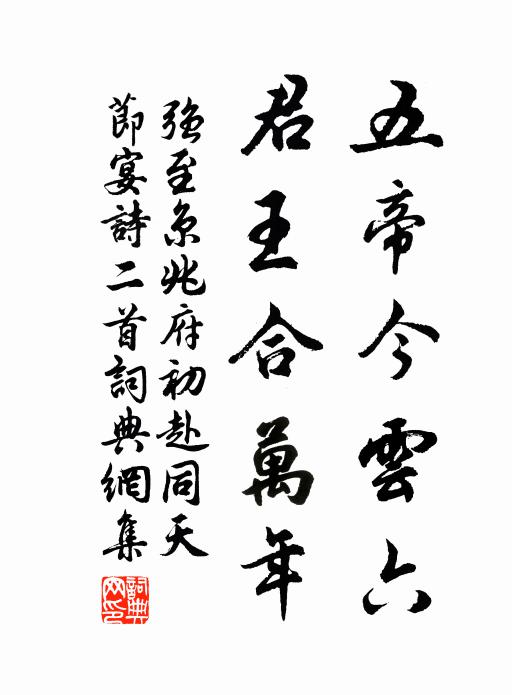 五帝今雲六
君王合萬年
強至京兆府初赴同天
節宴詩二首詞典網集
詞典网印